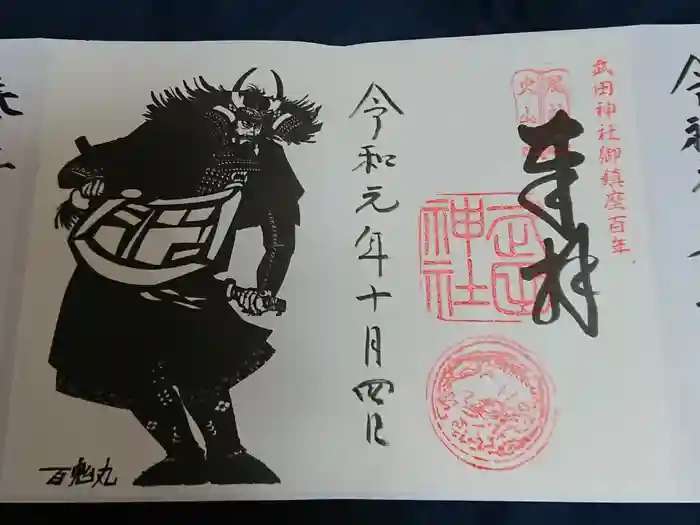 武田神社御鎮座百年
奉拝
武田神社
令和元年十月四日
百鬼丸